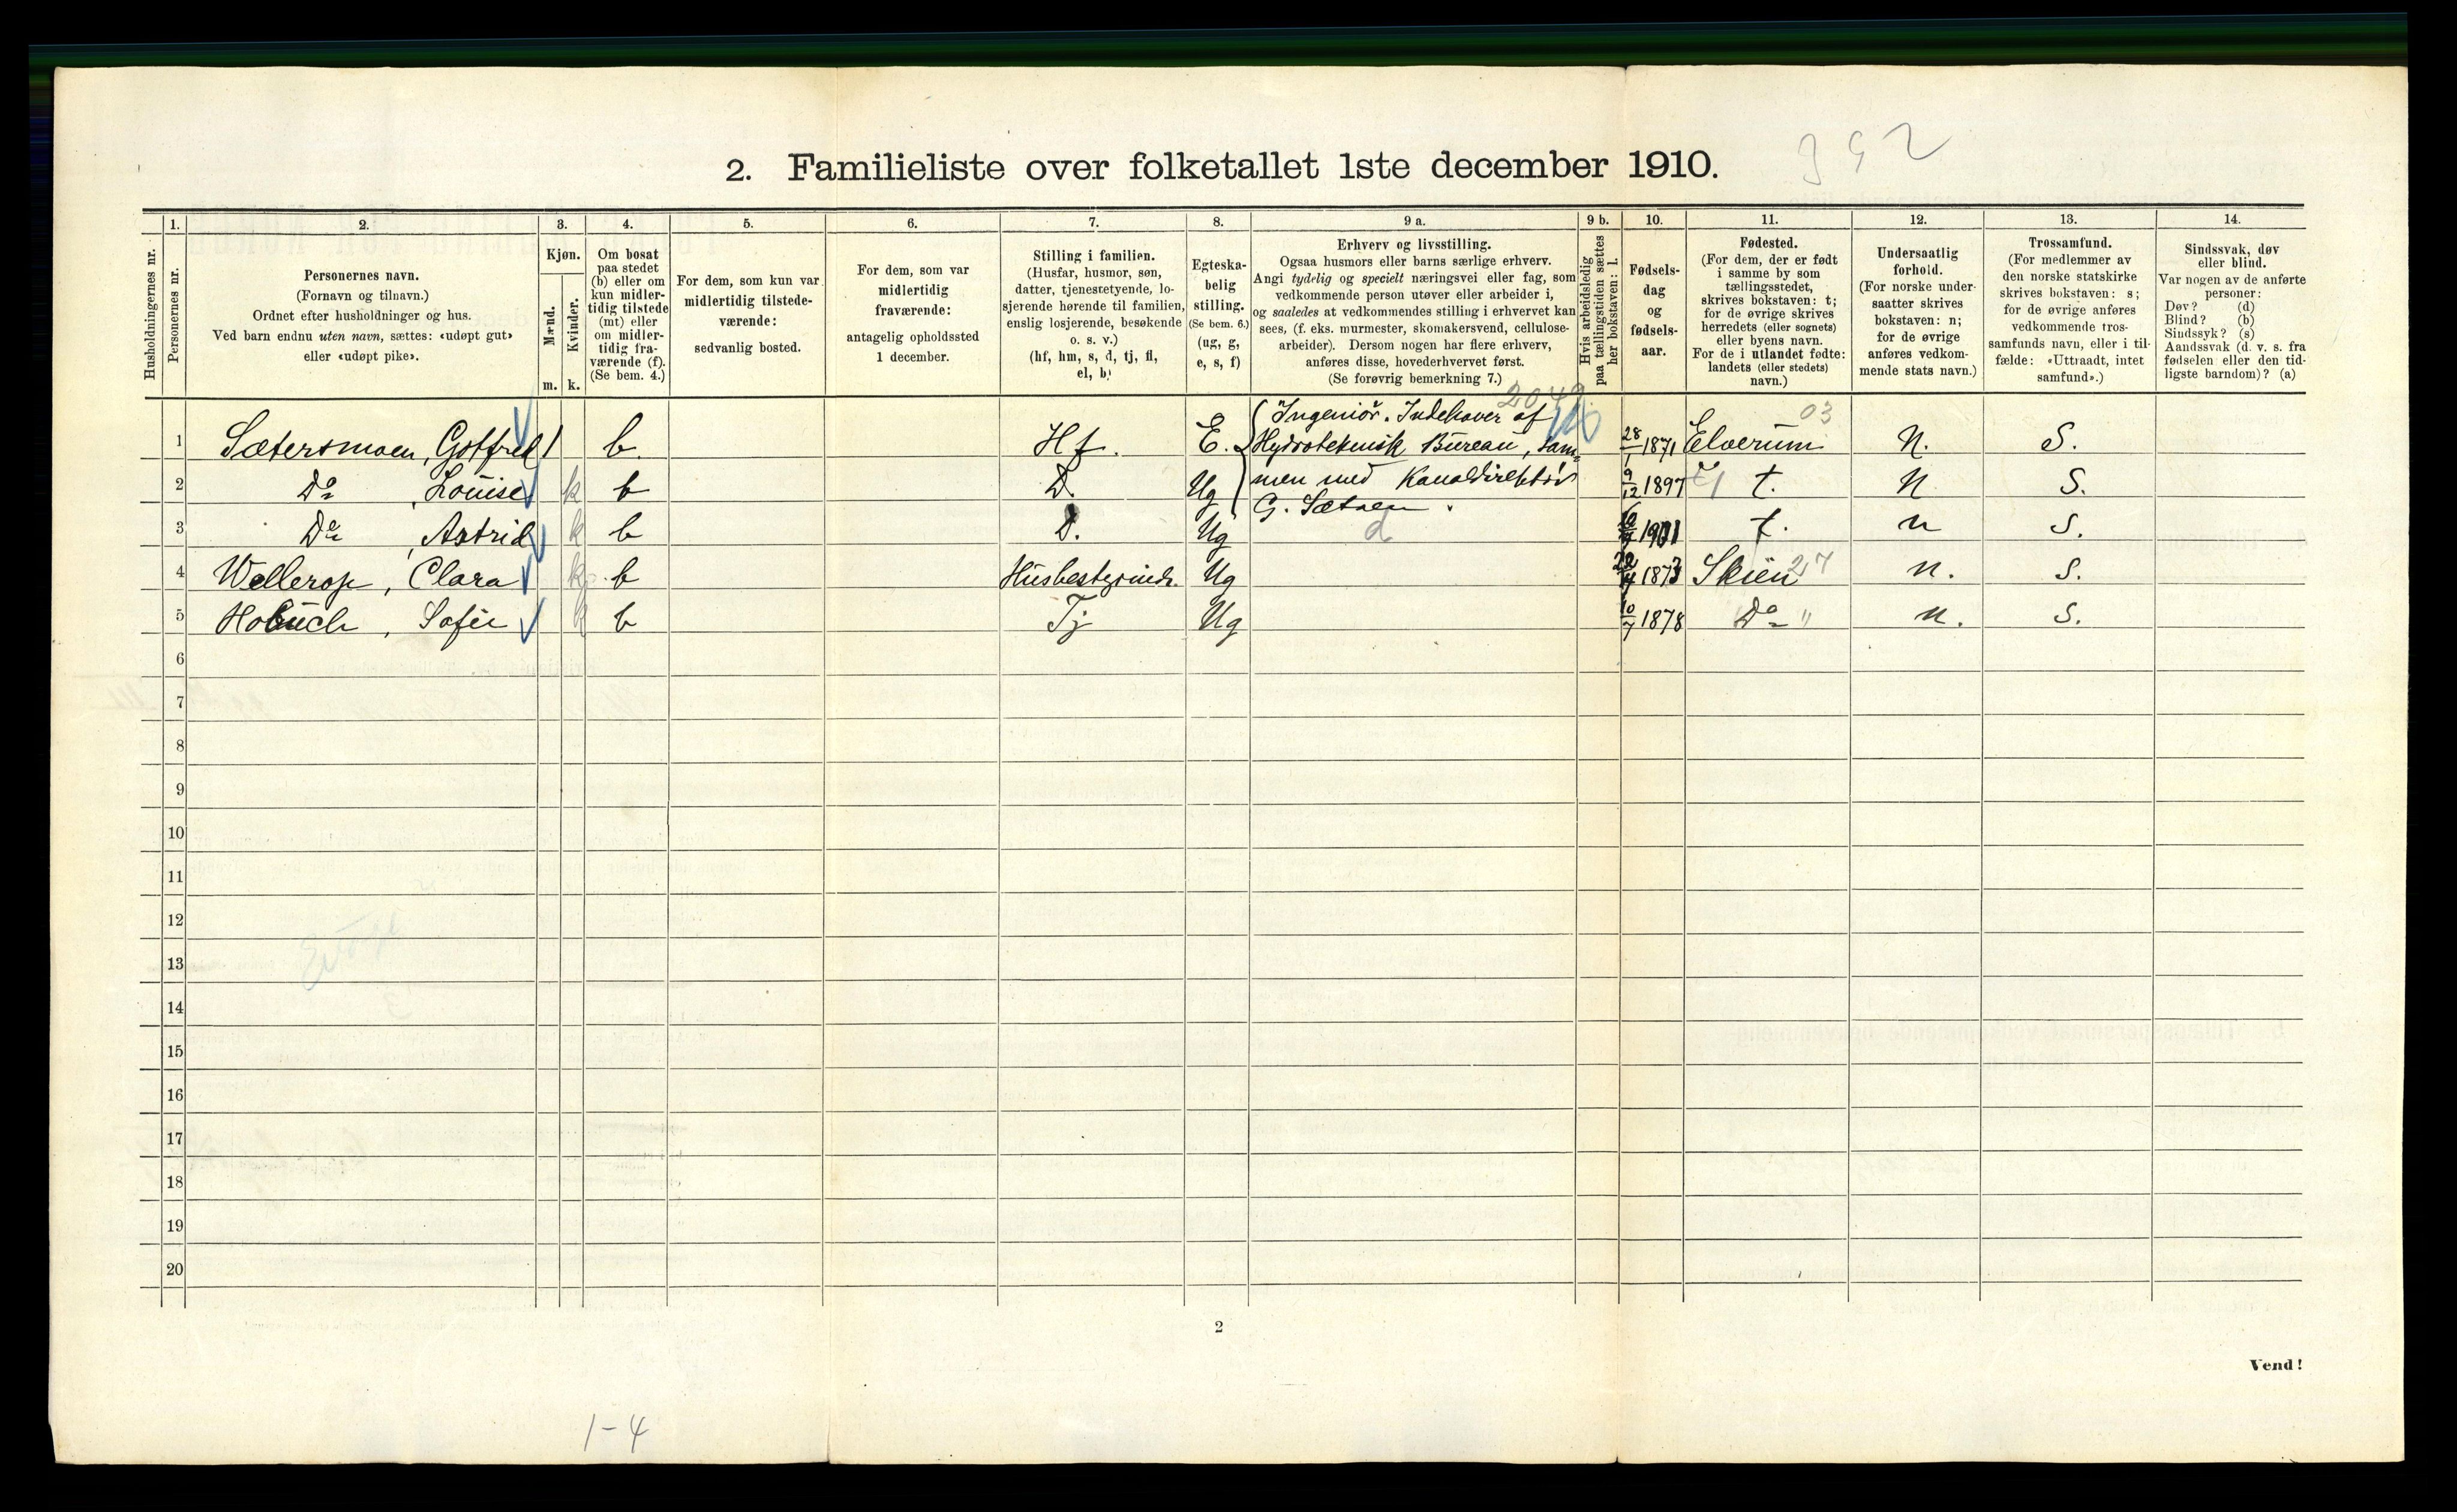 2. Familieliste over folketallet 1ste december 1910.
392
Husholdningernes nr.
1.
Personernes nr.
2.
Personernes navn.
(Fornavn og tilnavn.)
Ordnet efter husholdninger og hus.
Ved barn endnu uten navn, sættes: «udøpt gut»
eller «udøpt pike».
3.
Kjøn.
Mænd.
m.
Kvinder.
k.
4.
Om bosat
paa stedet
(b) eller om
kun midler-
tidig tilstede
(mt) eller
om midler-
tidig fra-
værende (f).
(Se bem. 4.)
5.
For dem, som kun var
midlertidig tilstede-
værende:
sedvanlig bosted.
6.
For dem, som var
midlertidig
fraværende:
antagelig opholdssted
1 december.
7.
Stilling i familien.
(Husfar, husmor, søn,
datter, tjenestetyende, lo-
sjerende hørende til familien,
enslig losjerende, besøkende
o. s. v.)
(hf, hm, s, d, tj, fl,
el, b)
8.
Egteska-
belig
stilling.
(Se bem. 6.)
(ug, g,
e, s, f)
9 a.
Erhverv og livsstilling.
Ogsaa husmors eller barns særlige erhverv.
Angi tydelig og specielt næringsvei eller fag, som
vedkommende person utøver eller arbeider i,
og saaledes at vedkommendes stilling i erhvervet kan
sees, (f. eks. murmester, skomakersvend, cellulose-
arbeider). Dersom nogen har flere erhverv,
anføres disse, hovederhvervet først.
(Se forøvrig bemerkning 7.)
9 b.
Hvis arbeidsledig
paa tællingstiden sættes
her bokstaven: l.
10.
Fødsels-
dag
og
fødsels-
aar.
11.
Fødested.
(For dem, der er født
i samme by som
tællingsstedet,
skrives bokstaven: t;
for de øvrige skrives
herredets (eller sognets)
eller byens navn.
For de i utlandet fødte:
landets (eller stedets)
navn.)
12.
Undersaatlig
forhold.
(For norske under-
saatter skrives
bokstaven: n;
for de øvrige
anføres vedkom-
mende stats navn.)
13.
Trossamfund.
(For medlemmer av
den norske statskirke
skrives bokstaven: s;
for de øvrige anføres
vedkommende tros-
samfunds navn, eller i til-
fælde: «Uttraadt, intet
samfund».)
14.
Sindssvak, døv
eller blind.
Var nogen av de anførte
personer:
Døv? (d)
Blind? (b)
Sindssyk? (s)
Aandssvak (d. v. s. fra
fødselen eller den tid-
ligste barndom)? (a)
1 Sætersmoen, Gotfred 1 b. Hf. E. Ingeniør. Indehaver af 28/1 1871 Elverum 03 N. S.
Hydroteknisk Bureau, sam=
2 Do, Louise k b D. Ug men med Kanaldirektør 9/12 1897 t. N S.
G. Sætren.
3 Do, Astrid k b D. Ug d 1901 t. n S.
4 Wellerop, Clara k b Husbestyrinde. Ug 1873 Skien 27 n. S.
5 Hobuch, Sofie k b Tj Ug 10/7 1878 Do " n. S.
6
7
8
9
10
11
12
13
14
15
16
17
18
19
20
2
Vend!
1-4